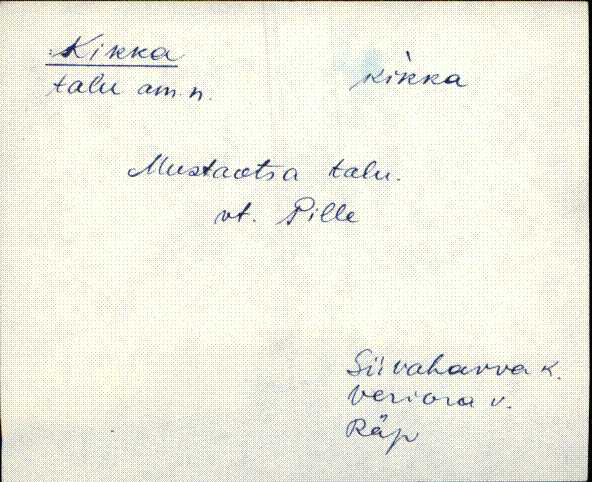 Kikka
talu am. n.
kikka
Mustaotsa talu.
vt. Pille
Süvahavva k.
Veriora v.
Räp